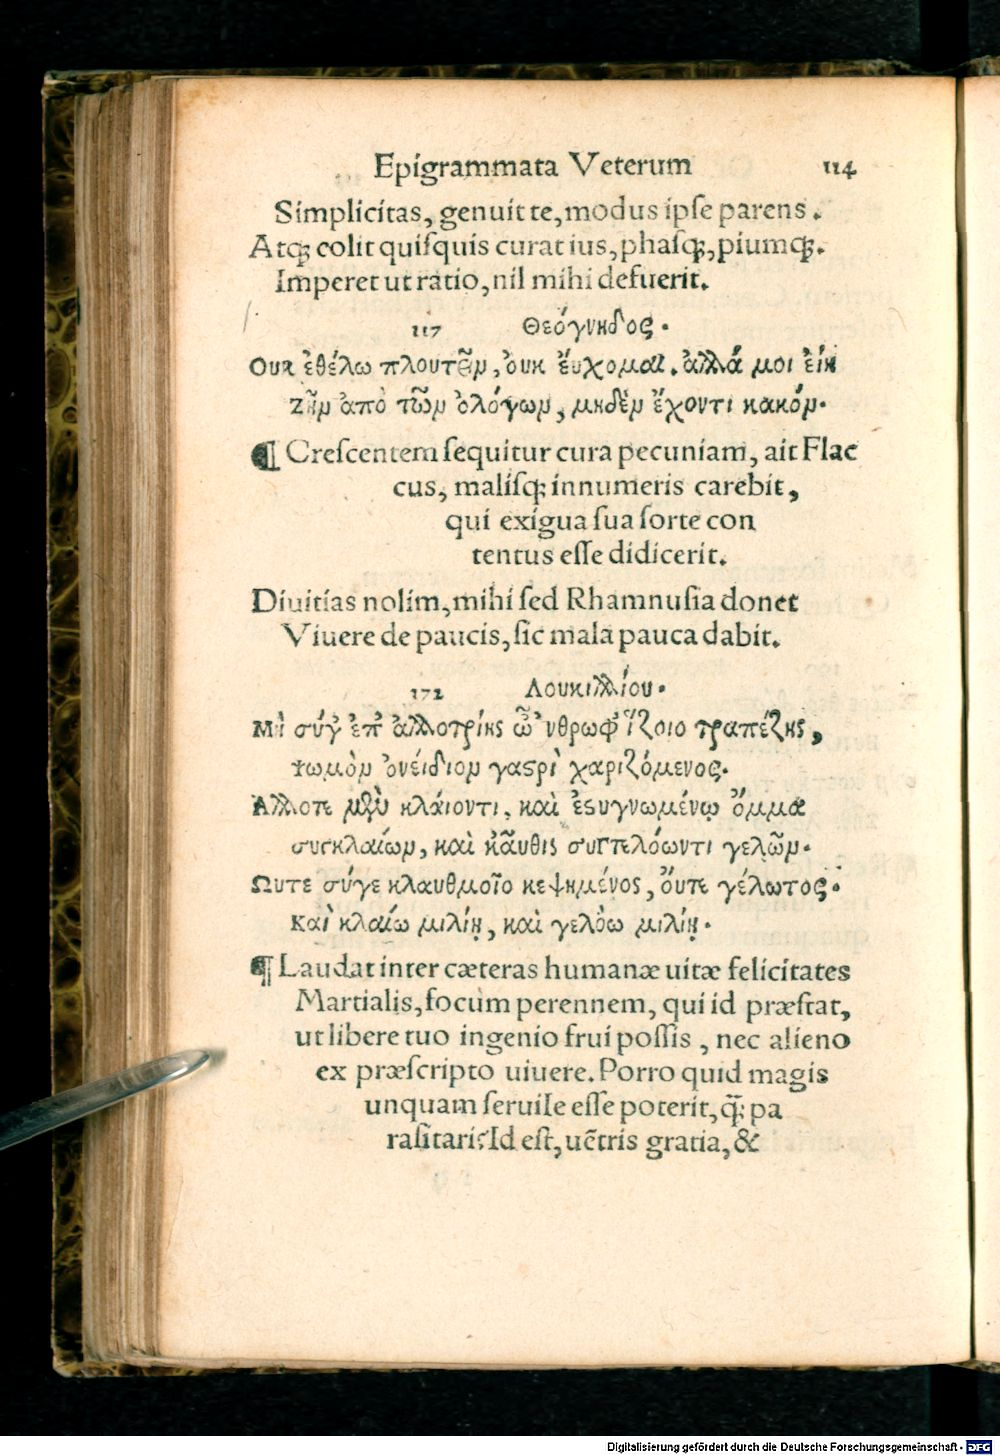 Epigrammata Veterum 114
Simplicitas, genuit te, modus ipse parens.
Atq; colit quisquis curat ius, phasq;, piumq;.
Imperet ut ratio, nil mihi defuerit.
117 Θεόγνιδος.
Ουκ ἐθέλω πλουτεῖν, ὀυκ ἔυχομαι. ἀλλά μοι ἐίη
Ζῆν ἀπὸ τῶν ὀλόγων, μηδὲν ἔχοντι κακόν.
¶ Crescentem sequitur cura pecuniam, ait Flac
cus, malisq; innumeris carebit,
qui exigua sua sorte con
tentus esse didicerit.
Diuitias nolim, mihi sed Rhamnusia donet
Viuere de paucis, sic mala pauca dabit.
172 Λουκιλλίου.
Μὴ σύγ' ἐπ' ἀλλοτρίης ὦ 'νθρωφ' ἵζοιο τραπέζης,
ψωμὸν ὀνέιδιον γαστρὶ χαριζόμενος.
Ἄλλοτε μὲν κλάιοντι, καὶ ἐστυγνωμένῳ ὄμμα
συγκλαίων, καὶ κᾶυθις συγγελόωντι γελῶν.
Ωυτε σύγε κλαυθμοῖο κεχρημένος, ὄυτε γέλωτος.
Καὶ κλαίω μιλίῃ, καὶ γελόω μιλίῃ.
¶ Laudat inter cæteras humanæ uitæ felicitates
Martialis, focum perennem, qui id præstat,
ut libere tuo ingenio frui possis, nec alieno
ex præscripto uiuere. Porro quid magis
unquam seruile esse poterit, q̃; pa
rasitari? Id est, uẽtris gratia, &
Digitalisierung gefördert durch die Deutsche Forschungsgemeinschaft - DFG